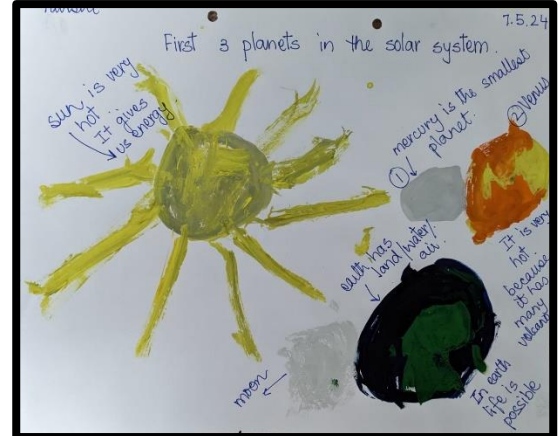 7.5.24
First 3 planets in the solar system.
sun is very
hot
It gives
us energy
mercury is the smallest
planet.
①
② Venus
It is very
hot
because
it has
many
volcano
earth has
land/water/
air.
moon
In earth
life is
possible